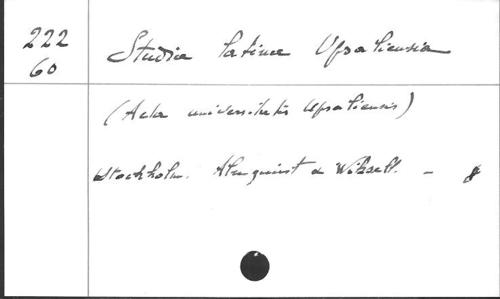 222
60
Studia latina Upsaliensia
(Acta universitatis Upsaliensis)
Stockholm. Almquist & Wiksell. - 8